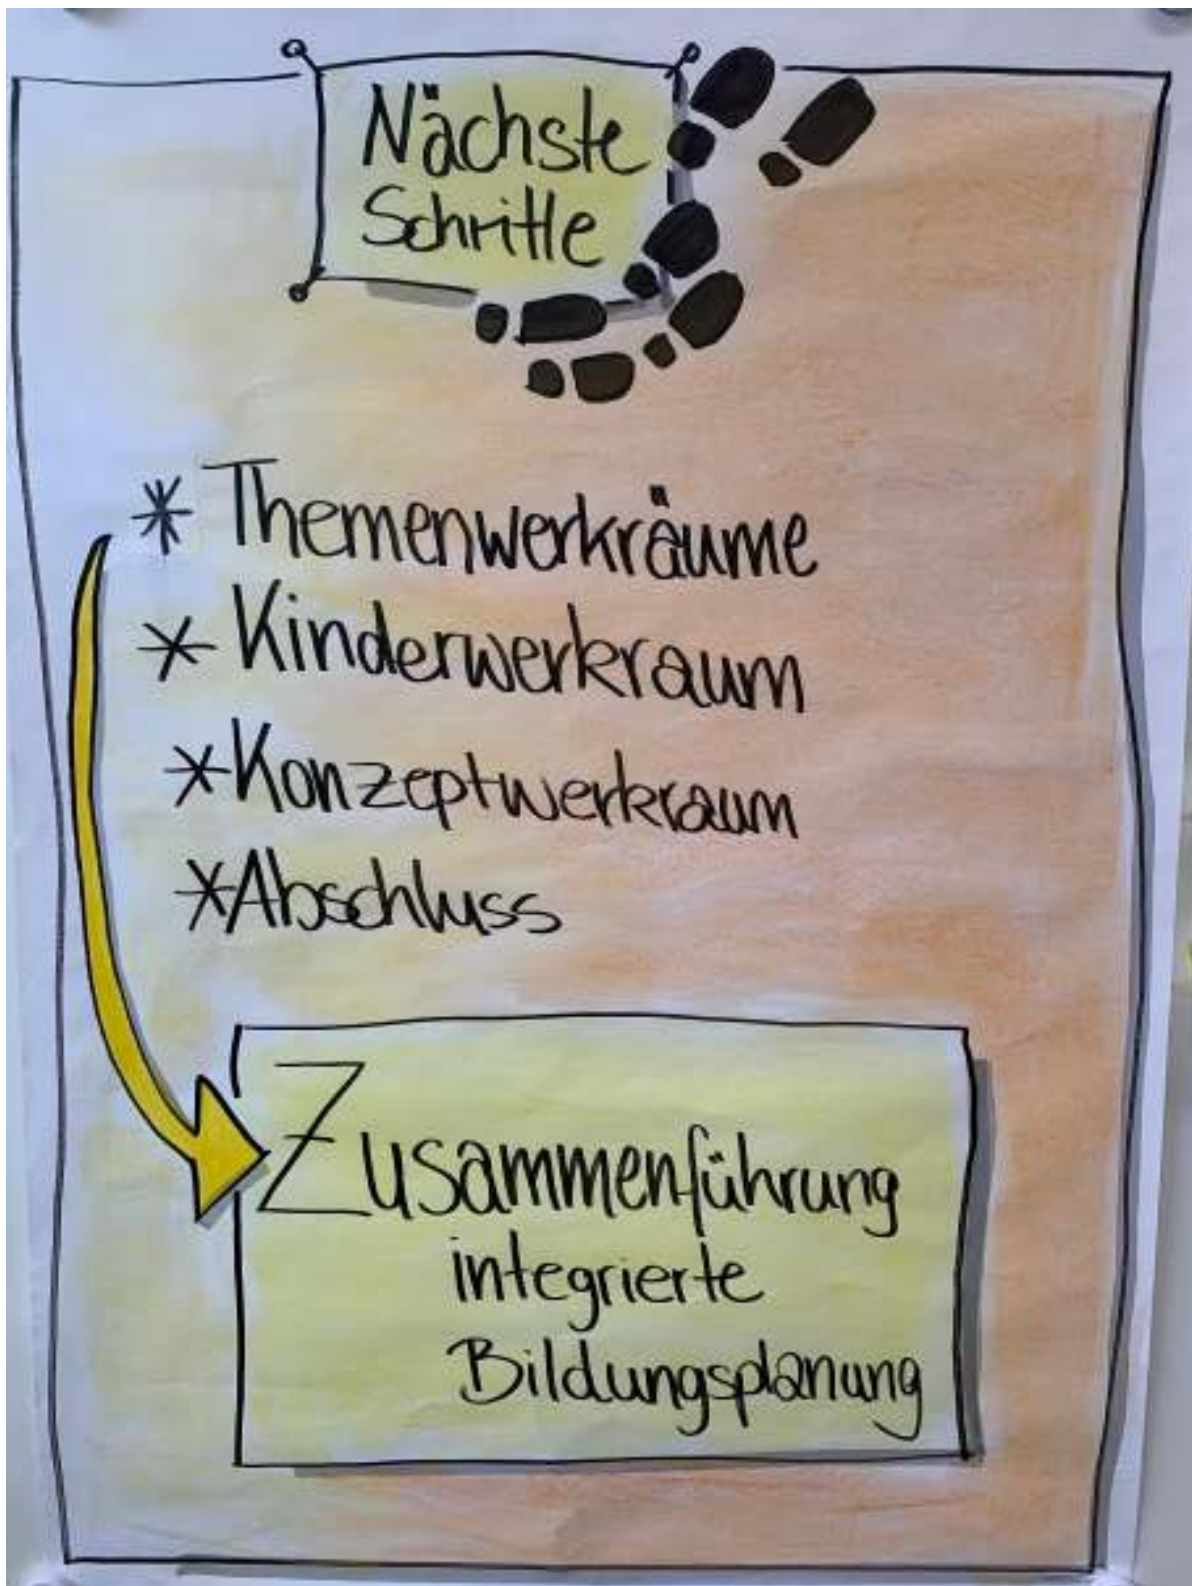 Nächste
Schritte
* Themenwerkräume
* Kinderwerkraum
* Konzeptwerkraum
* Abschluss
Zusammenführung
integrierte
Bildungsplanung